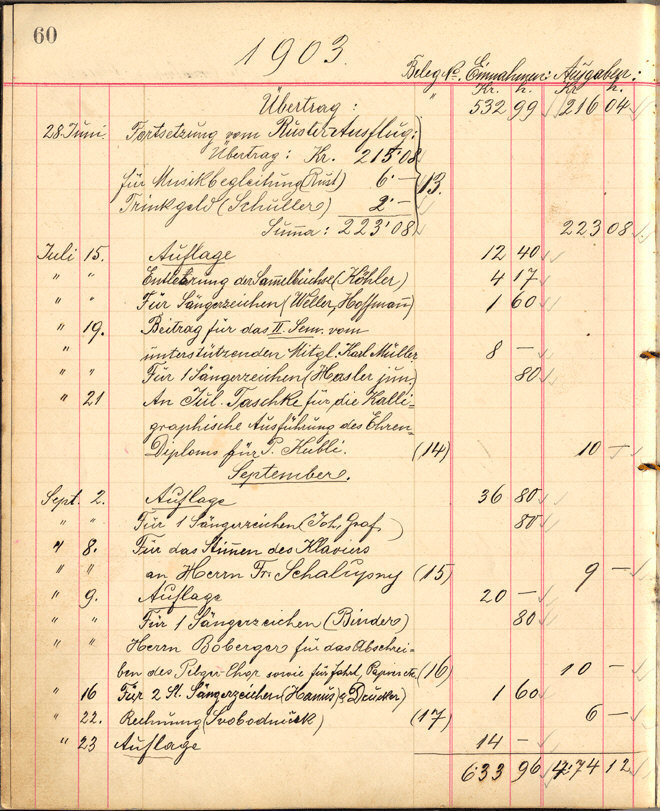 60
1903.
Beleg No. Einnahmen: Ausgaben:
Kr. h. Kr. h.
Übertrag: " 532 99 216 04
28. Juni. Fortsetzung vom Ruster-Ausflug:
Übertrag: Kr. 215'08
für Musikbegleitung (Rust) 6'— 13.
Trinkgeld (Schuller) 2'—
Suma: 223'08 223 08
Juli 15. Auflage 12 40
" " Entleerung der Sammelbüchse (Köhler) 4 17
" " Für Sängerzeichen (Weller, Hoffmann) 1 60
" 19. Beitrag für das II. Sem. vom
" unterstützenden Mitgl. Karl Müller 8 —
" " Für 1 Sängerzeichen (Hasler jun.) 80
" 21 An Jul. Taschke für die Kalli-
graphische Ausführung des Ehren-
Diploms für P. Kubli. (14) 10 —
September.
Sept. 2. Auflage 36 80
" " Für 1 Sängerzeichen (Joh. Graf) 80
" 8. Für das Stimen des Klaviers
" " an Herrn Fr. (15) 9 —
" 9. Auflage 20 —
" " Für 1 Sängerzeichen (Binder) 80
" " Herrn Boberger für das Abschrei-
ben des Pilger-Chor sowie für Fahrt, Papier etc. (16) 10 —
" 16 Für 2 St. Sängerzeichen (Hanus & Drucker) 1 60
" 22. Rechnung (17) 6 —
" 23 Auflage 14 —
633 96 474 12